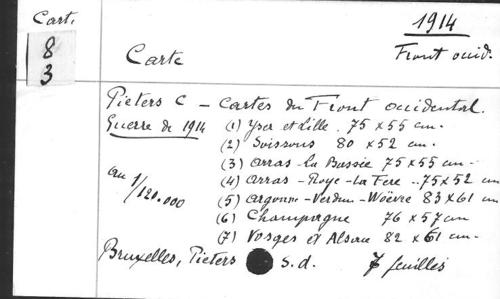 Cart. 1914
8
3
Carte Front occid.
Pieters C – Cartes du Front occidental.
Guerre de 1914 (1) Yser et Lille. 75 x 55 cm.
(2) Soissons 80 x 52 cm.
(3) Arras – La Bassée 75 x 55 cm.
(4) Arras – Roye – La Fere .. 75 x 52 cm
au 1/120.000 (5) Argonne – Verdun – Woëvre 83 x 61 cm
(6) Champagne 76 x 57 cm
(7) Vosges et Alsace 82 x 61 cm.
Bruxelles, Pieters s.d. 7 feuilles